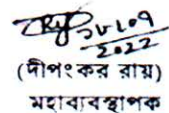 ২৮/০৭
2022
(দীপংকর রায়)
মহাব্যবস্থাপক